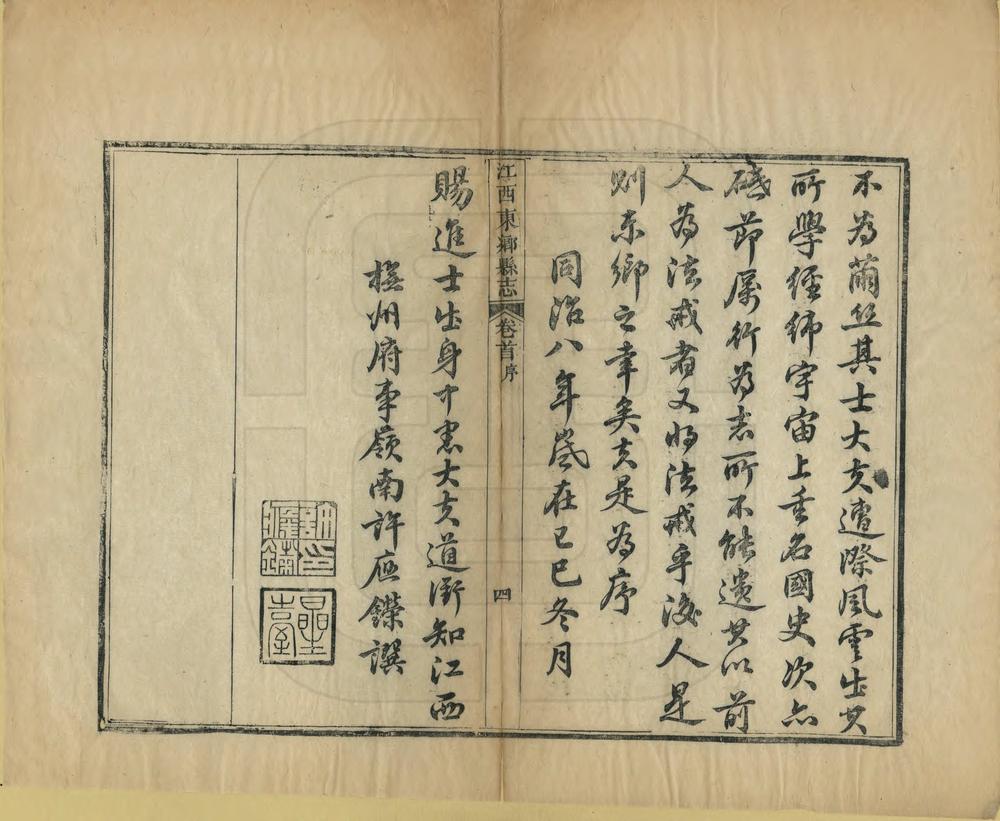 不為繭絲其士大夫遭際風雲出其
所學經緯宇宙上垂名國史次亦
砥節厲行為志所不能遺其以前
人為法戒者又將法戒乎後人是
則東鄉之幸矣夫是為序
同治八年歲在己巳冬月
江西東鄉縣志
卷首序
四
賜進士出身中憲大夫道銜知江西
撫州府事嶺南許應鑅撰